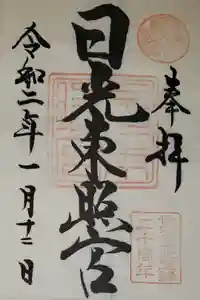 奉拝
日光東照宮
令和二年一月十二日
二十周年